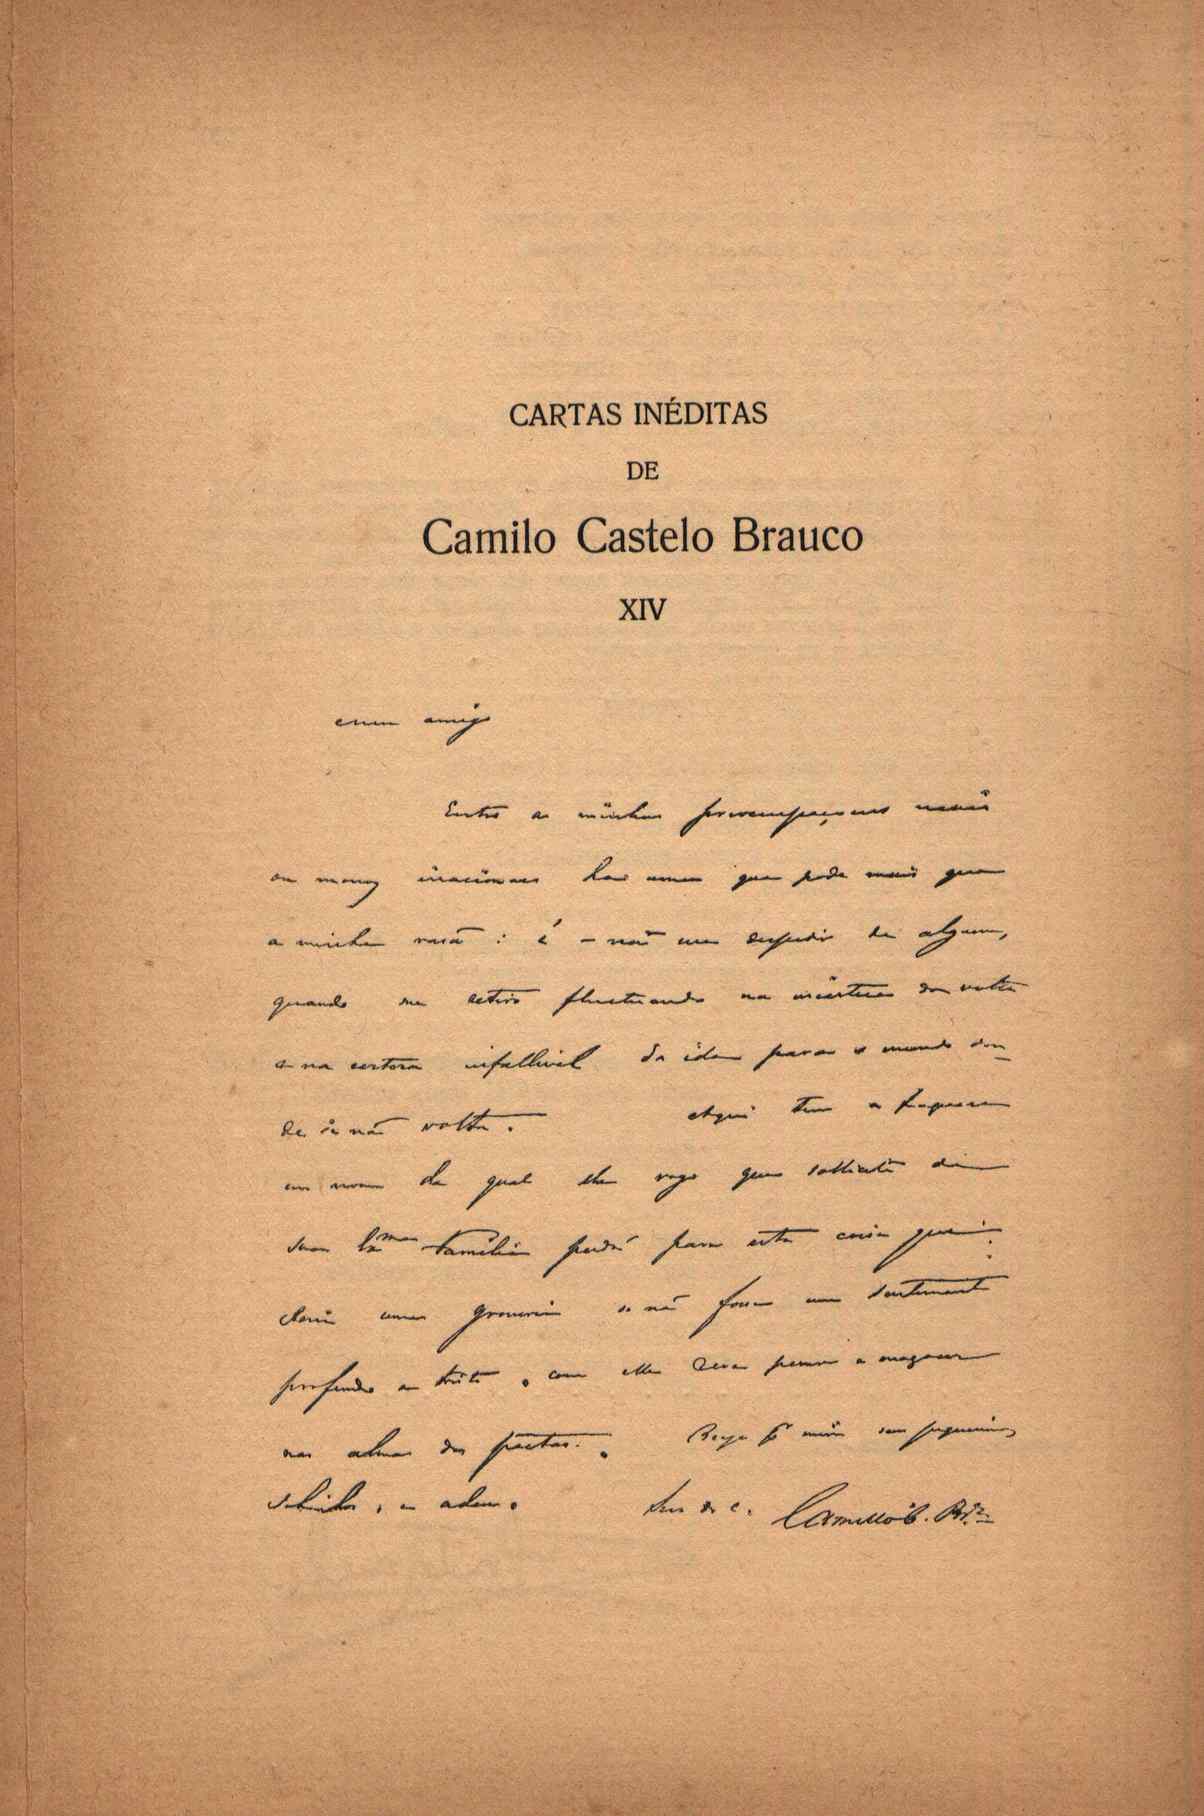 CARTAS INÉDITAS
DE
Camilo Castelo Brauco
XIV
meu amigo
Entre as minhas preoccupaçoens mais
ou menos irracionaes ha uma que pode mais que
a minha rasão : é – não me despedir de alguem,
quando me retiro fluctuando na incertesa da volta
e na certesa infallivel da ida para o mundo don-
de se não volta . Aqui tem a fraquesa
em nome da qual lhe rogo que sollicite de
sua Ex.ma familia perdão para esta coisa que
seria uma grosseria se não fosse um sentimento
profundo e triste ,
nas almas dos poetas . mim seus pequeninos
, e adeus . Seu do c. Camillo C. Br.co